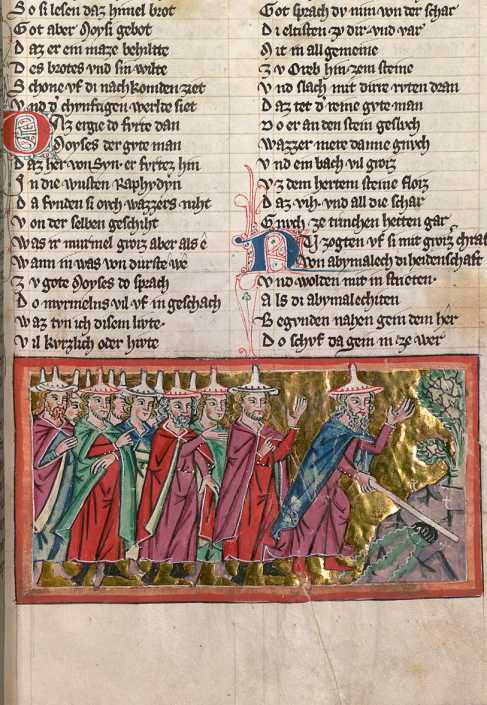 So si lesen daz himel brot
Got aber Moysi gebot
Daz er ein maze behiltte
Des brotes vnd sin wilte
Schone vf di nachkomden ziet
Vnd d chynftigen werlde siet
Daz ergie do fvrte dan
Moyses der gvte man
Daz her von Syn er fvrtez hin
In die wusten Raphydyn
Da fvnden si ovch wazzers niht
Von der selben geschiht
Was ir mvrmel groz aber als ê
Wann in was von dvrste wê
Zv gote Moyses do sprach
Do myrmelns vil vf in geschach
Waz tvn ich disem livte
Vil kvrzlich oder hivte
Got sprach dv nim von der schar
Di eltisten zv dir vnd var
Mit in all gemeine
Zv Oreb hin zem steine
Vnd slach mit dirre rvten dran
Daz tet d reine gvte man
Do er an den stein geslvch
Wazzer mere danne gnvch
Vnd ein bach vil groz
Vz dem hertem steine floz
Daz vih vnd all die schar
Gnvch ze trinchen heiten gar
Nv zogten vf si mit groz chraft
Von abymalech di heidenschaft
Vnd wolden mit in striten
Als di abymalechiten
Begvnden nahen gein dem her
Do schvf da gein in ze wer